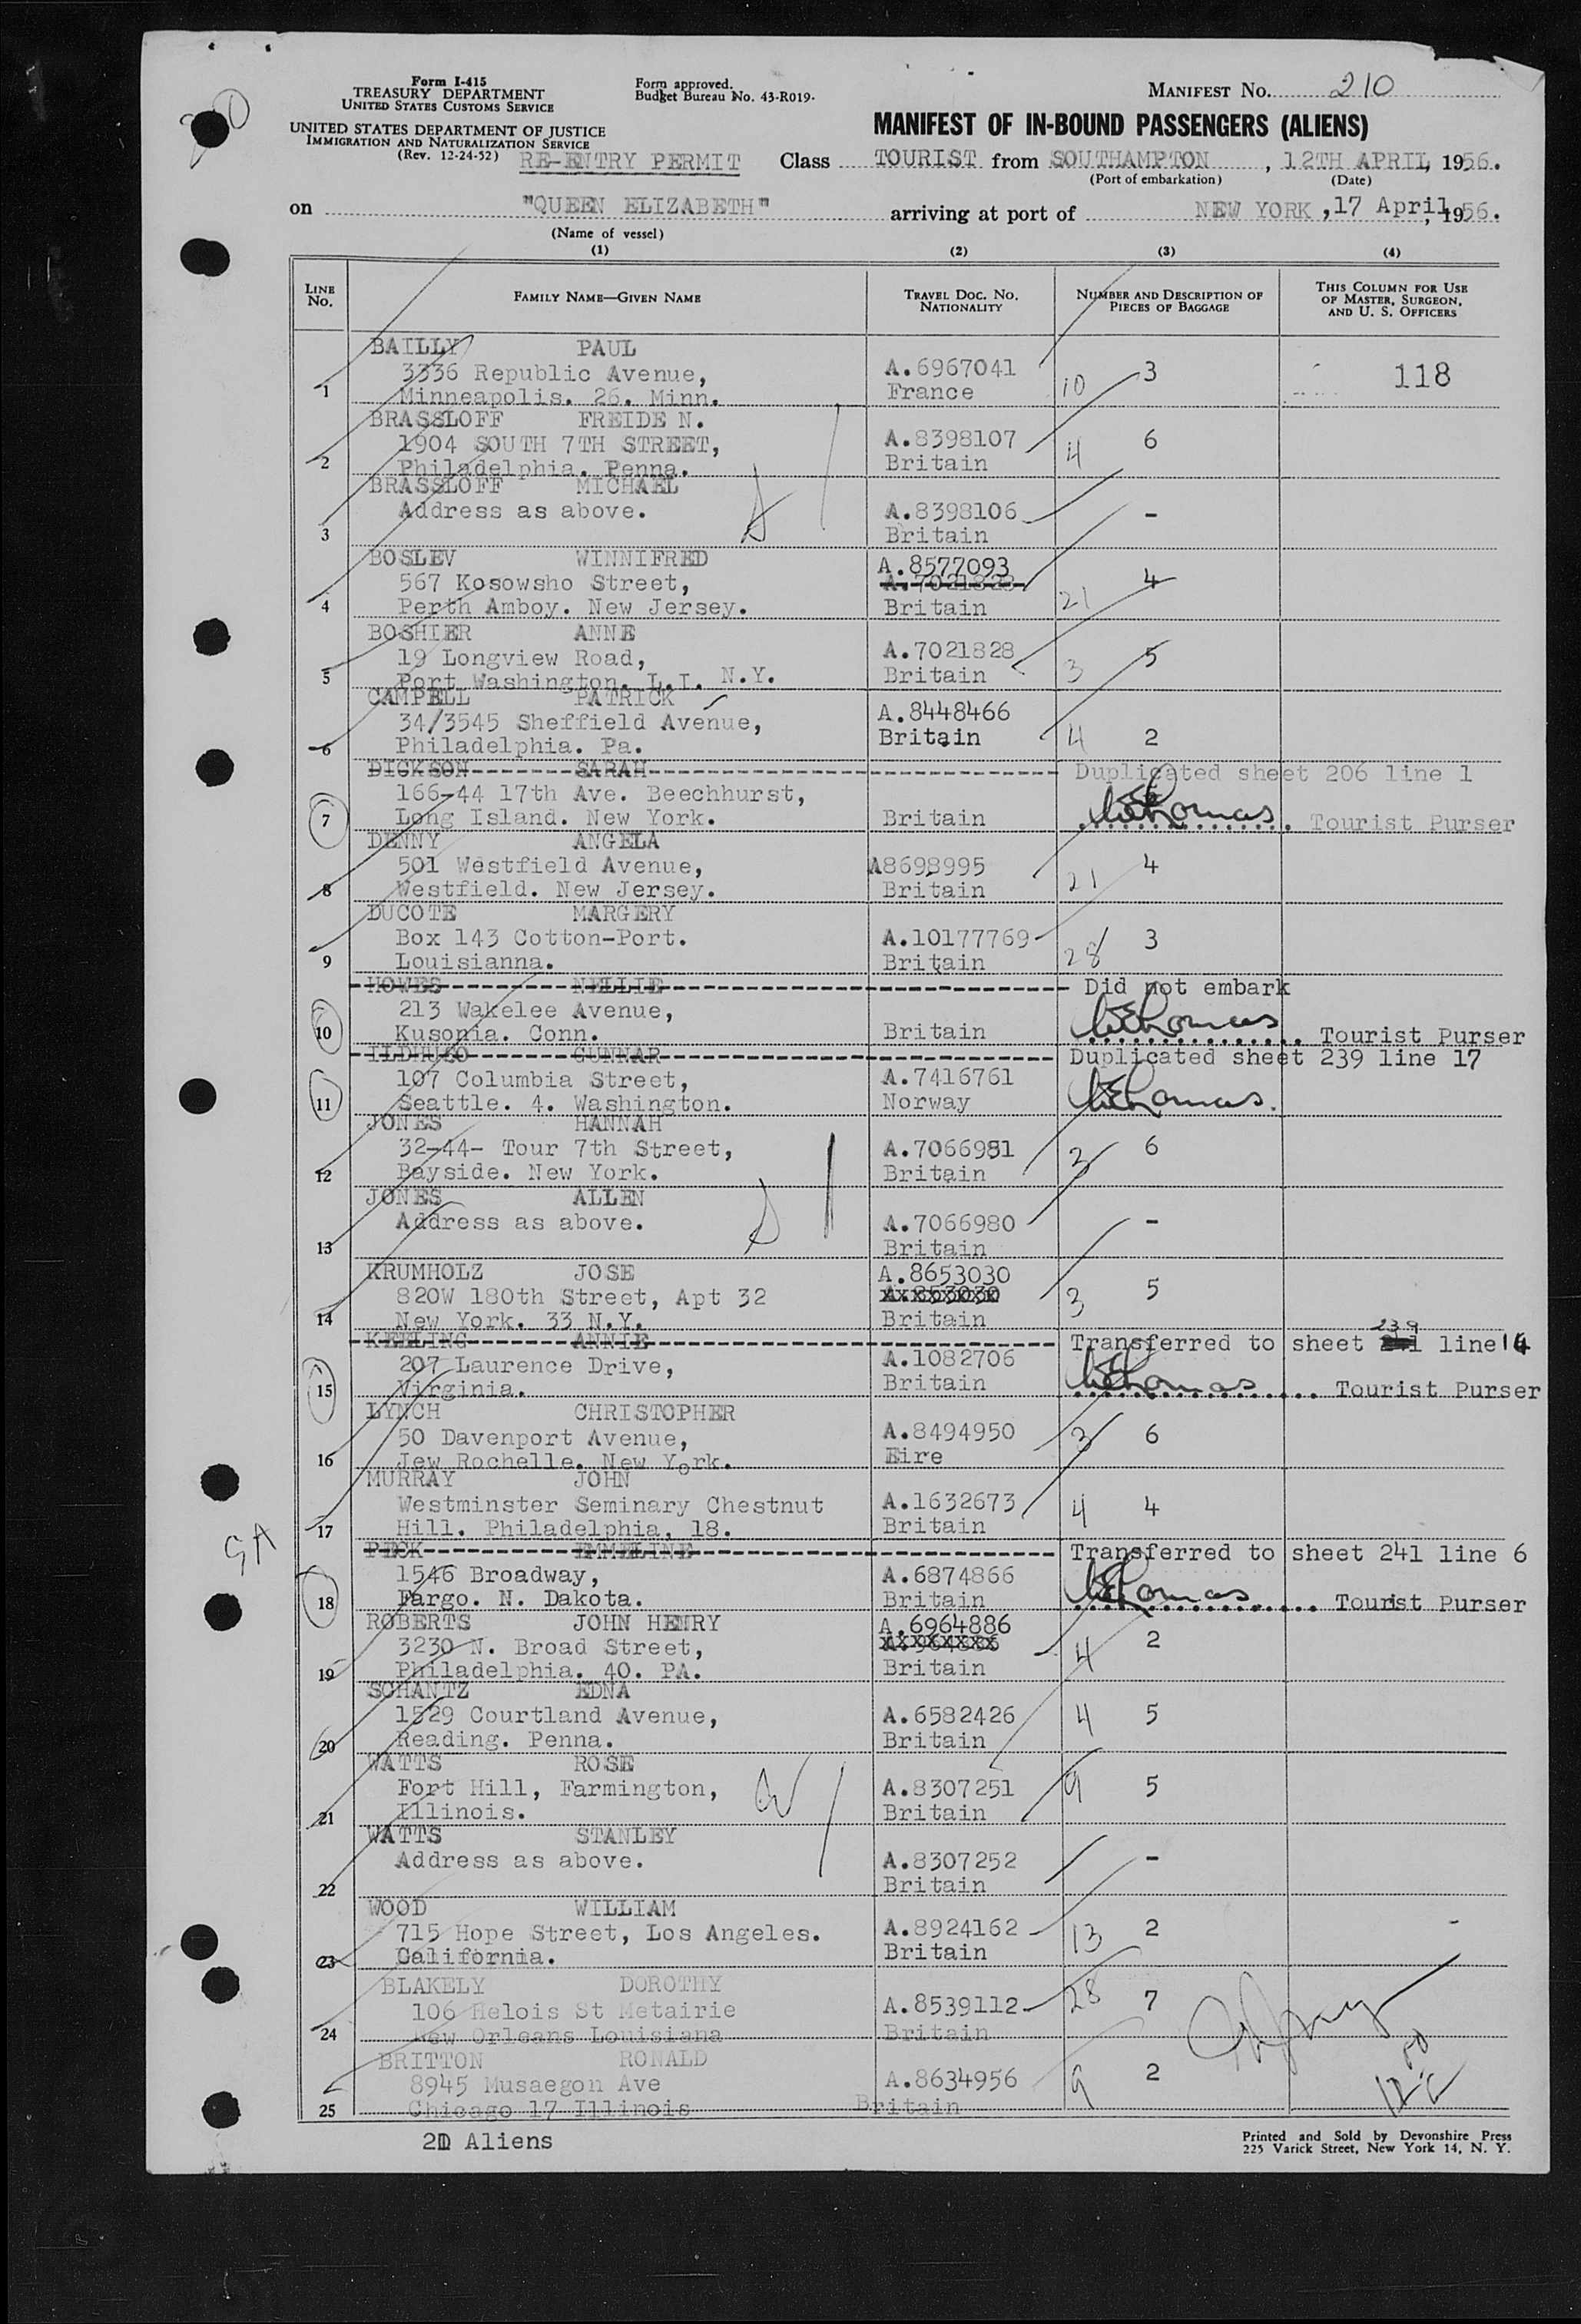 Form I-415
TREASURY DEPARTMENT
UNITED STATES CUSTOMS SERVICE
Form approved.
Budget Bureau No. 43-R019.
MANIFEST NO. 210
UNITED STATES DEPARTMENT OF JUSTICE
IMMIGRATION AND NATURALIZATION SERVICE
(Rev. 12-24-52)
MANIFEST OF IN-BOUND PASSENGERS (ALIENS)
RE-ENTRY PERMIT Class TOURIST from SOUTHAMPTON, 12TH APRIL, 1956.
(Port of embarkation) (Date)
on "QUEEN ELIZABETH" arriving at port of NEW YORK, 17 April, 1956.
(Name of vessel)
(1) (2) (3) (4)
LINE NO. FAMILY NAME—GIVEN NAME TRAVEL DOC. NO. NATIONALITY NUMBER AND DESCRIPTION OF PIECES OF BAGGAGE THIS COLUMN FOR USE OF MASTER, SURGEON, AND U. S. OFFICERS
BAILLY PAUL
3336 Republic Avenue, A.6967041 3 118
1 Minneapolis. 26. Minn. France 10
BRASSLOFF FREIDE N.
1904 SOUTH 7TH STREET, A.8398107 6
2 Philadelphia. Penna. Britain 4
BRASSLOFF MICHAEL
Address as above. A.8398106 -
3 Britain
BOSLEV WINNIFRED A.8577093
567 Kosowsho Street, A.7021828 4
4 Perth Amboy. New Jersey. Britain 21
BOSHIER ANNE
19 Longview Road, A.7021828 5
5 Port Washington. L.I. N.Y. Britain 3
CAMPBELL PATRICK
34/3545 Sheffield Avenue, A.8448466
6 Philadelphia. Pa. Britain 4 2
DICKSON SARAH Duplicated sheet 206 line 1
166-44 17th Ave. Beechhurst,
7 Long Island. New York. Britain Thomas Tourist Purser
DENNY ANGELA
501 Westfield Avenue, A8698995 4
8 Westfield. New Jersey. Britain 21
DUCOTE MARGERY
Box 143 Cotton-Port. A.10177769 3
9 Louisianna. Britain 28
HOWES NELLIE Did not embark
213 Wakelee Avenue,
10 Kusonia. Conn. Britain Thomas Tourist Purser
ILDHUSO GUNNAR Duplicated sheet 239 line 17
107 Columbia Street, A.7416761
11 Seattle. 4. Washington. Norway Thomas.
JONES HANNAH
32-44- Tour 7th Street, A.7066981 6
12 Bayside. New York. Britain 3
JONES ALLEN
Address as above. A.7066980 -
13 Britain
KRUMHOLZ JOSE A.8653030
820W 180th Street, Apt 32 5
14 New York. 33 N.Y. Britain 3
KEELING ANNIE Transferred to sheet 239 line 14
207 Laurence Drive, A.1082706
15 Virginia. Britain Thomas Tourist Purser
LYNCH CHRISTOPHER
50 Davenport Avenue, A.8494950 3 6
16 Jew Rochelle. New York. Eire
MURRAY JOHN
Westminster Seminary Chestnut A.1632673 4 4
17 Hill. Philadelphia, 18. Britain
PECK EMMELINE Transferred to sheet 241 line 6
1546 Broadway, A.6874866
18 Fargo. N. Dakota. Britain Thomas Tourist Purser
ROBERTS JOHN HENRY A.6964886
3230 N. Broad Street, 2
19 Philadelphia. 40. PA. Britain 4
SCHANTZ EDNA
1529 Courtland Avenue, A.6582426 4 5
20 Reading. Penna. Britain
WATTS ROSE
Fort Hill, Farmington, A.8307251 9 5
21 Illinois. Britain
WATTS STANLEY
Address as above. A.8307252 -
22 Britain
WOOD WILLIAM
715 Hope Street, Los Angeles. A.8924162 2
23 California. Britain 13
BLAKELY DOROTHY
106 Helois St Metairie A.8539112 28 7
24 New Orleans Louisiana Britain
BRITTON RONALD
8945 Musaegon Ave A.8634956 9 2
25 Chicago 17 Illinois Britain
SA
Aliens
Printed and Sold by Devonshire Press
225 Varick Street, New York 14, N. Y.